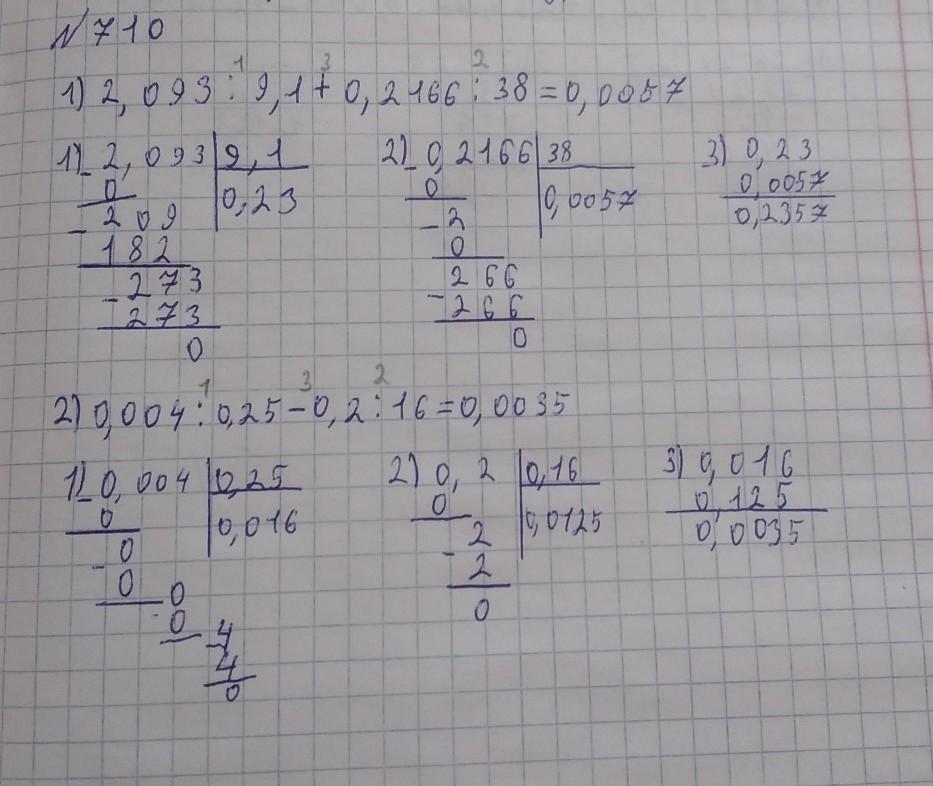 №710
1) 2,093 : 9,1 + 0,2166 : 38 = 0,0057
1 3 2
1) 2,093 | 9,1
0 0,23
- 209
182
- 273
273
0
2) 0,2166 | 38
0 0,0057
- 2
0
266
- 266
0
3) 0,23
0,0057
0,2357
2) 0,004 : 0,25 - 0,2 : 16 = 0,0035
1 3 2
1) 0,004 | 0,25
0 0,016
- 0
0
0
0
4
4
0
2) 0,2 | 0,16
0 0,0125
- 2
2
0
3) 0,016
0,125
0,0035